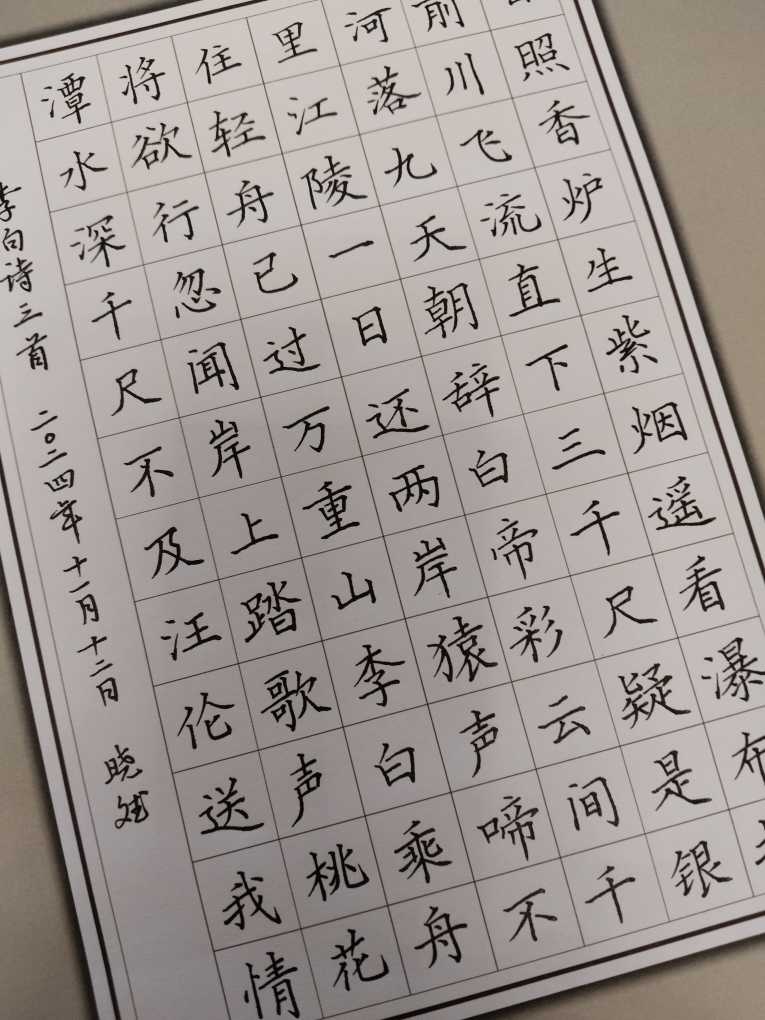 照香炉生紫烟遥看瀑布
前川飞流直下三千尺疑是银
河落九天朝辞白帝彩云间千
里江陵一日还两岸猿声啼不
住轻舟已过万重山李白乘舟
将欲行忽闻岸上踏歌声桃花
潭水深千尺不及汪伦送我情
李白诗三首 二〇二四年十一月十二日 晓斌